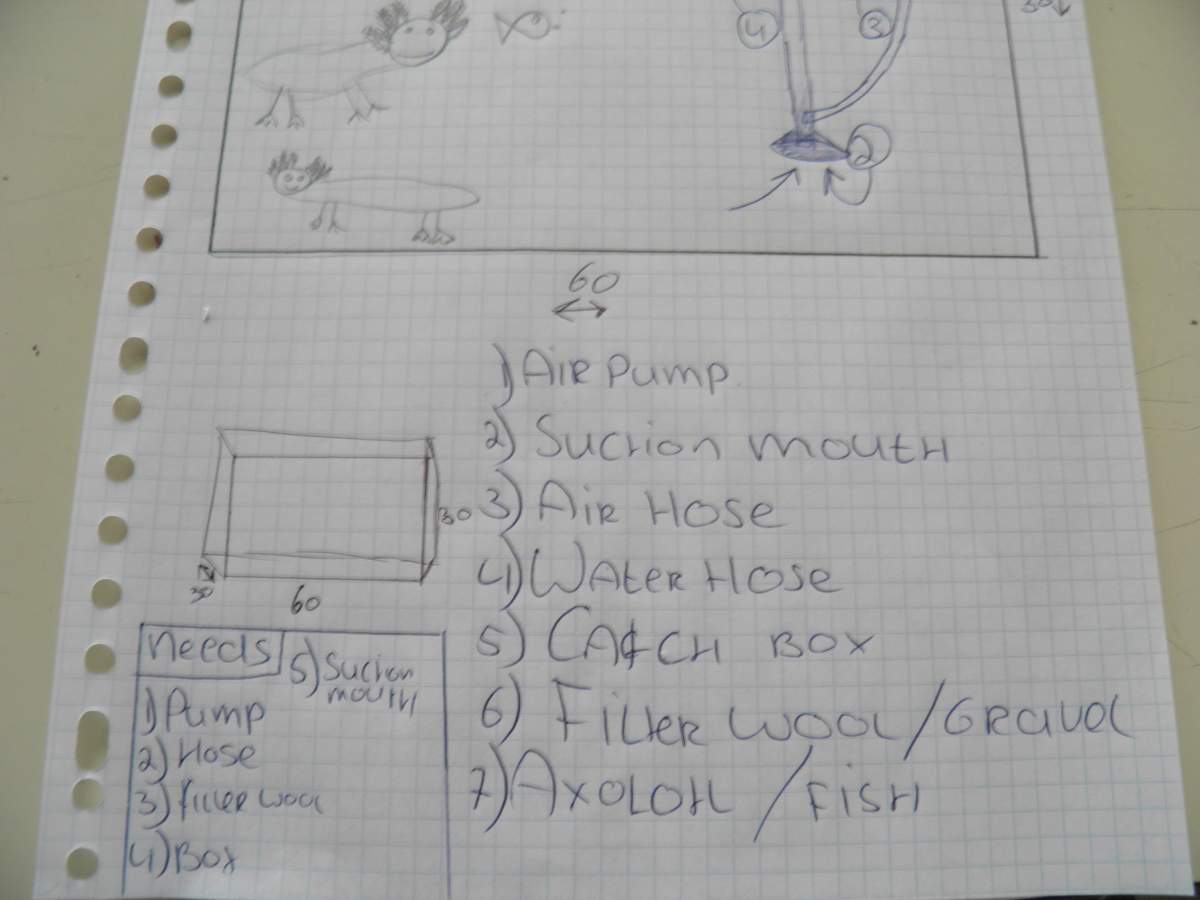 4
3
30
2
60
1) Air Pump
2) Suction mouth
3) Air Hose
4) Water Hose
5) Catch Box
6) Filter Wool / Gravel
7) Axolotl / Fish
30
30
60
Needs
5) Suction
mouth
1) Pump
2) Hose
3) filter wool
4) Box